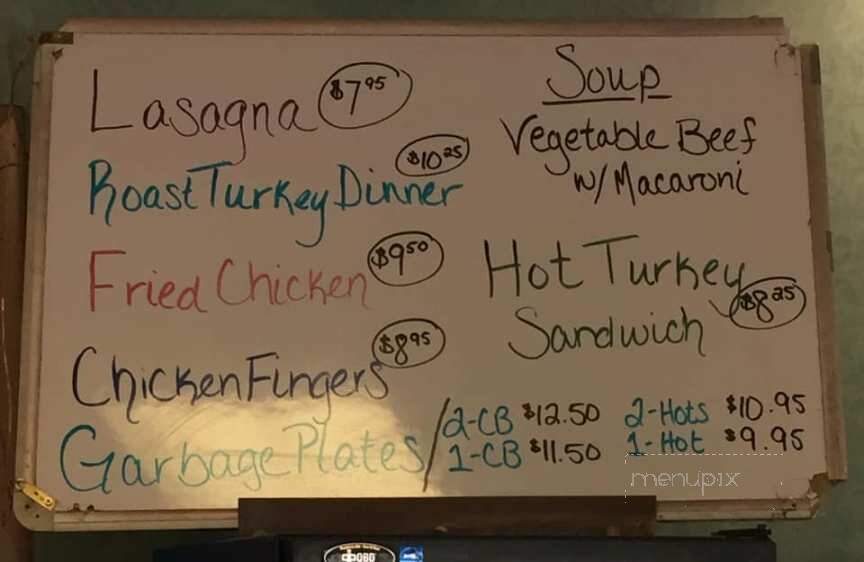 Lasagna $7.95
Roast Turkey Dinner $10.25
Fried Chicken $9.50
Chicken Fingers $8.95
Soup
Vegetable Beef
w/Macaroni
Hot Turkey
Sandwich $8.25
Garbage Plates / 2-CB $12.50 2-Hots $10.95
1-CB $11.50 1-Hot $9.95
menupix